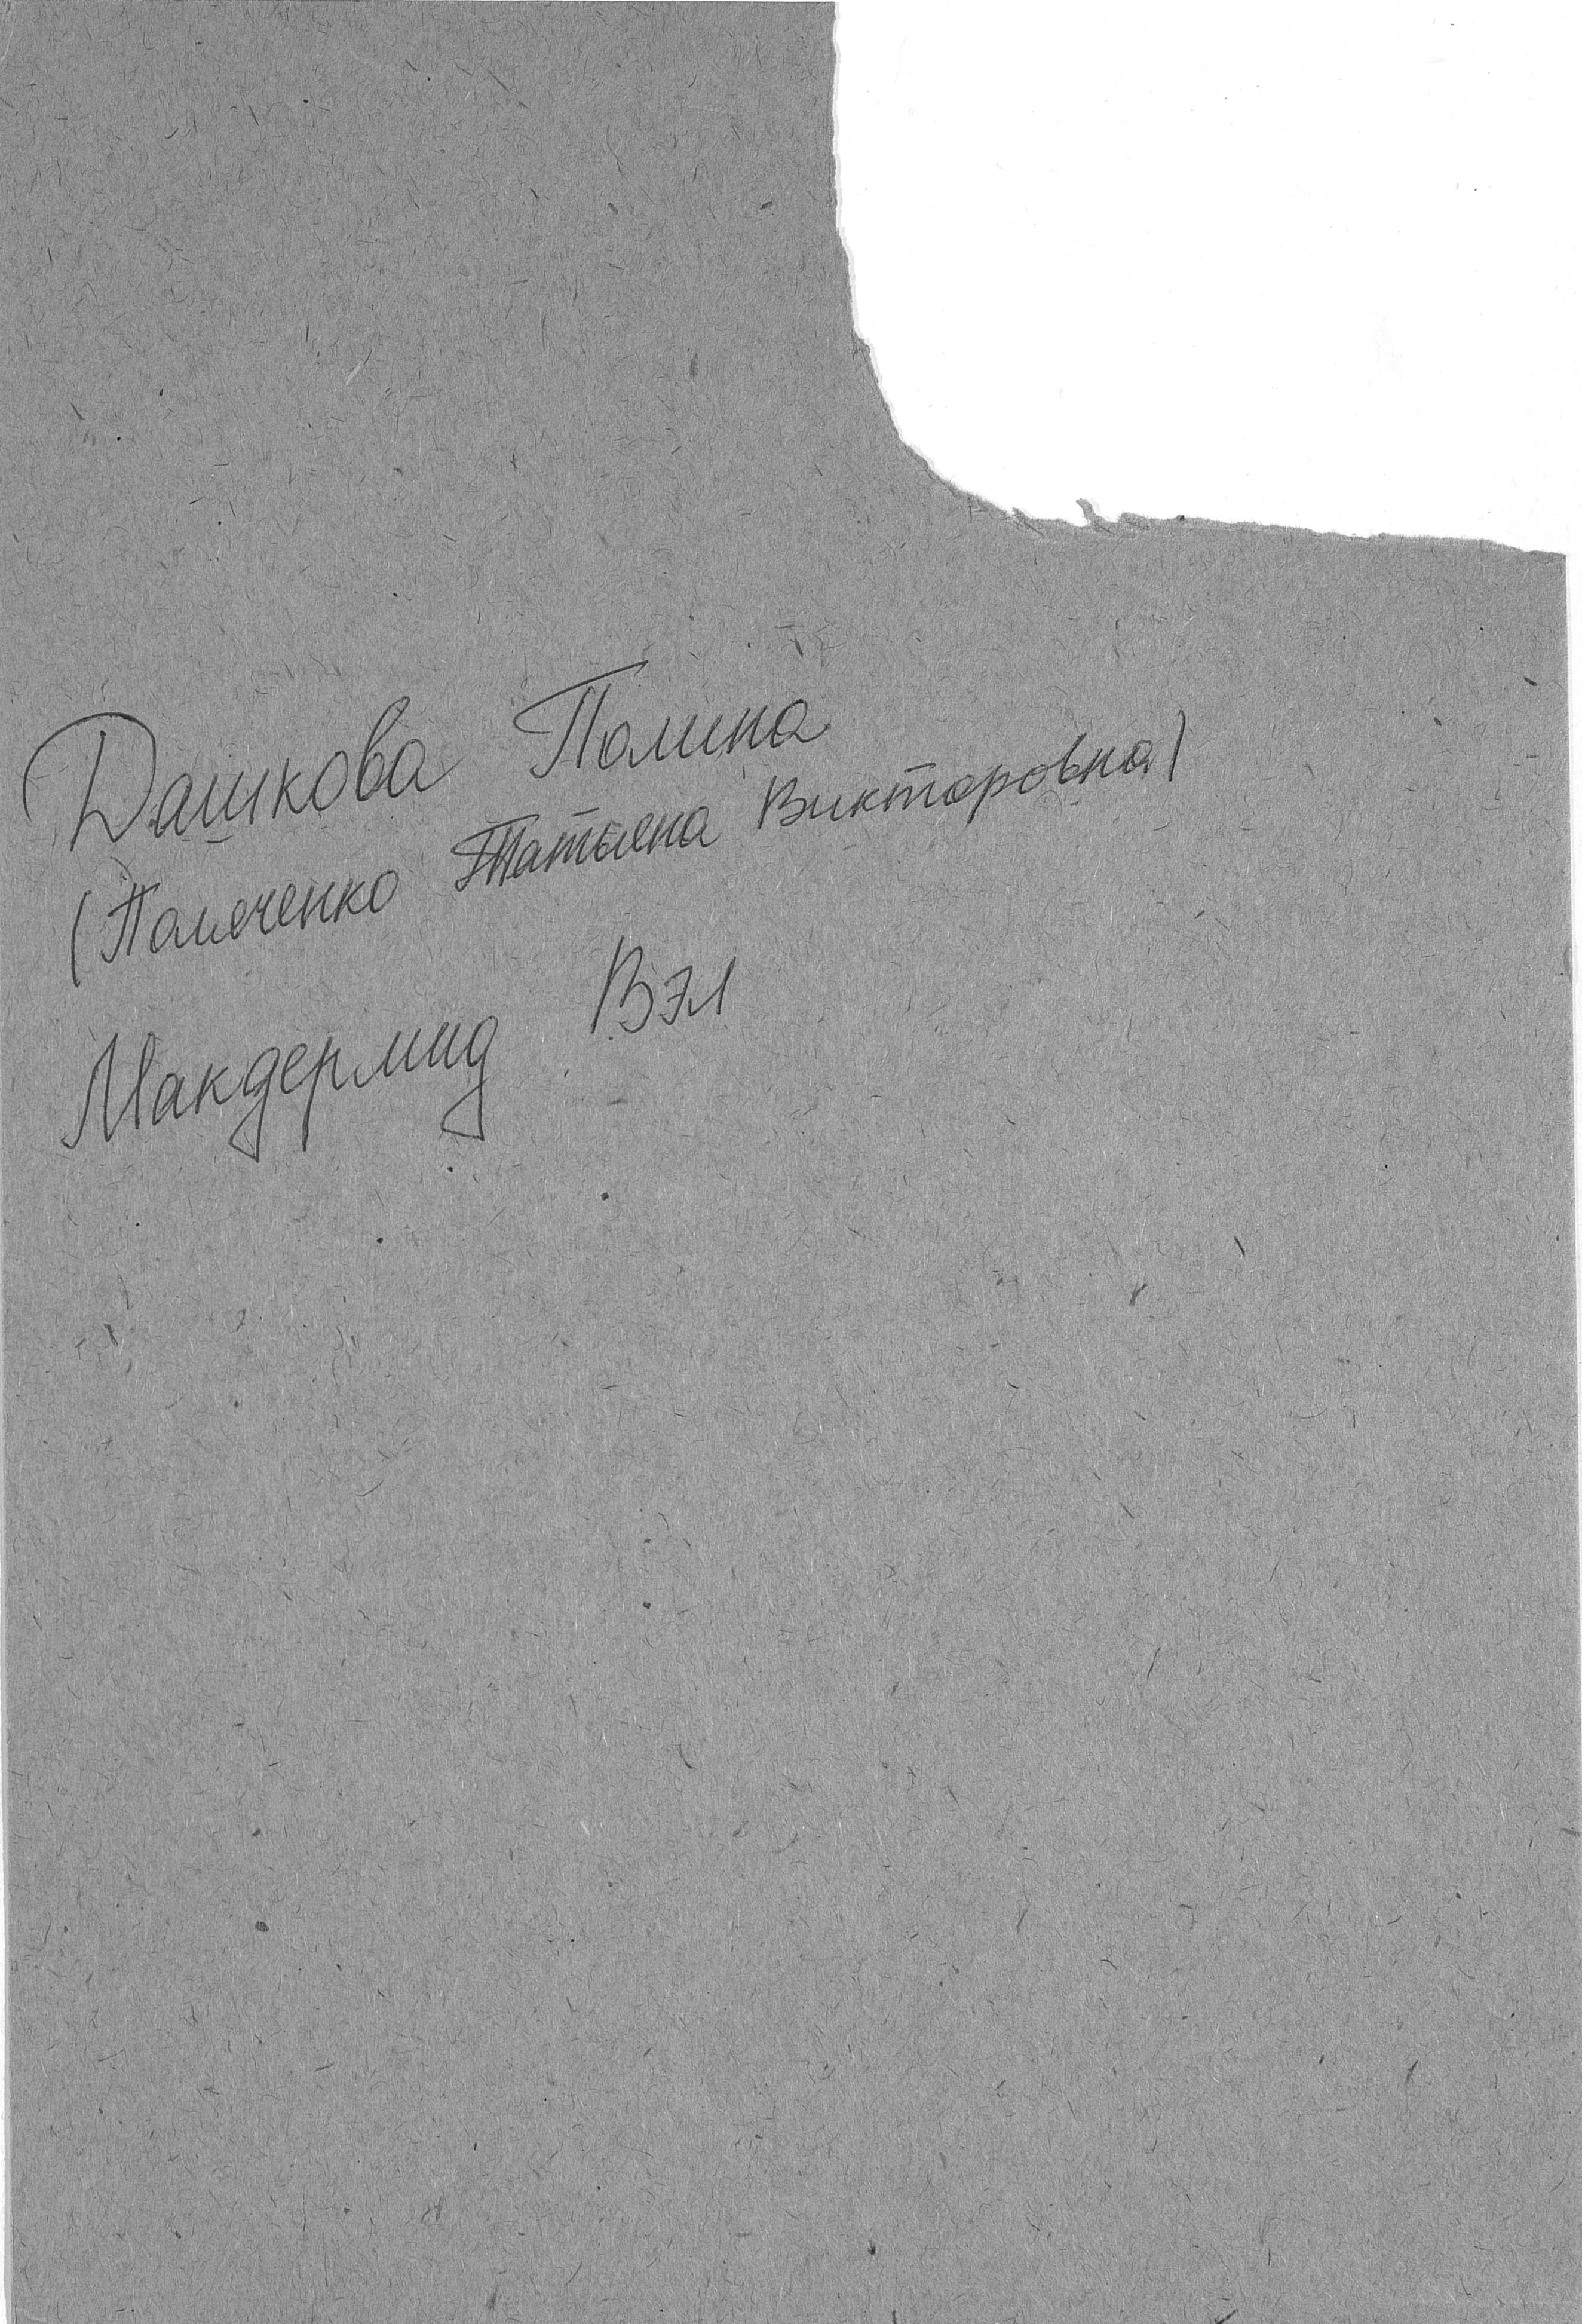 Дашкова Полина
(Поляченко Татьяна Викторовна)
Макдермид Вэл